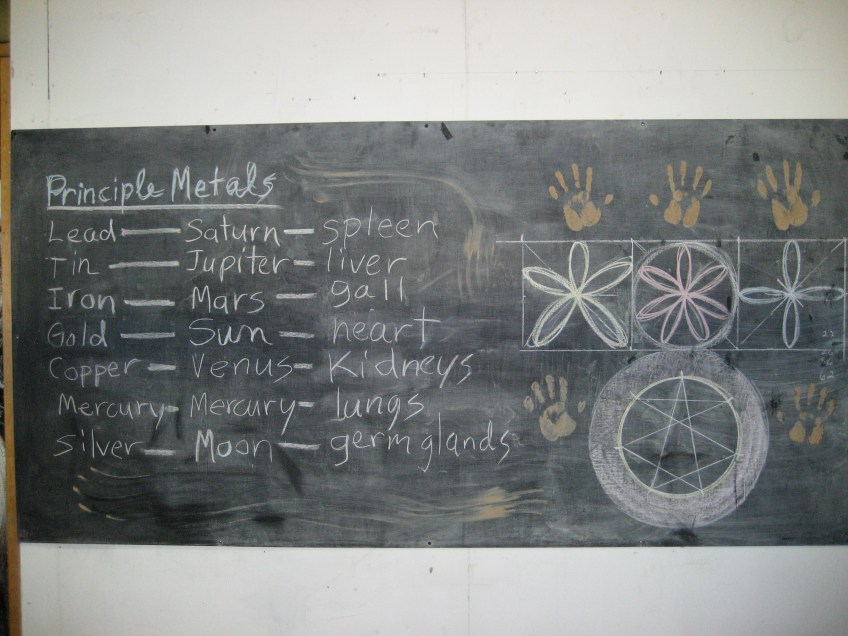 Principle Metals
Lead — Saturn — spleen
Tin — Jupiter — liver
Iron — Mars — gall
Gold — Sun — heart
Copper — Venus — Kidneys
Mercury — Mercury — lungs
silver — Moon — germ glands